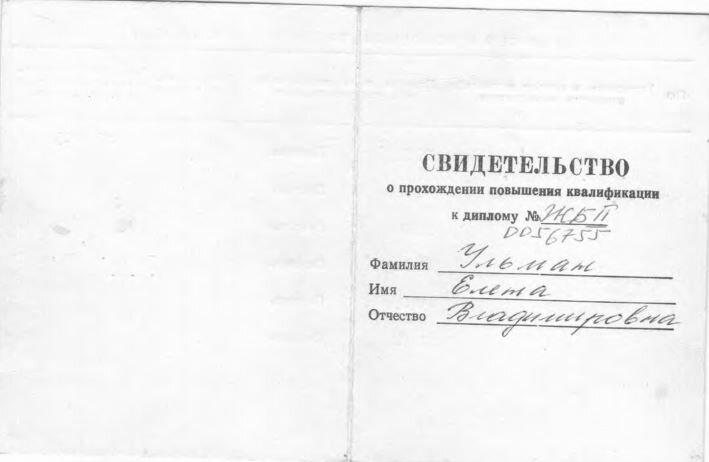 СВИДЕТЕЛЬСТВО
о прохождении повышения квалификации
к диплому № ЖБП
0056755
Фамилия Ульман
Имя Елена
Отчество Владимировна